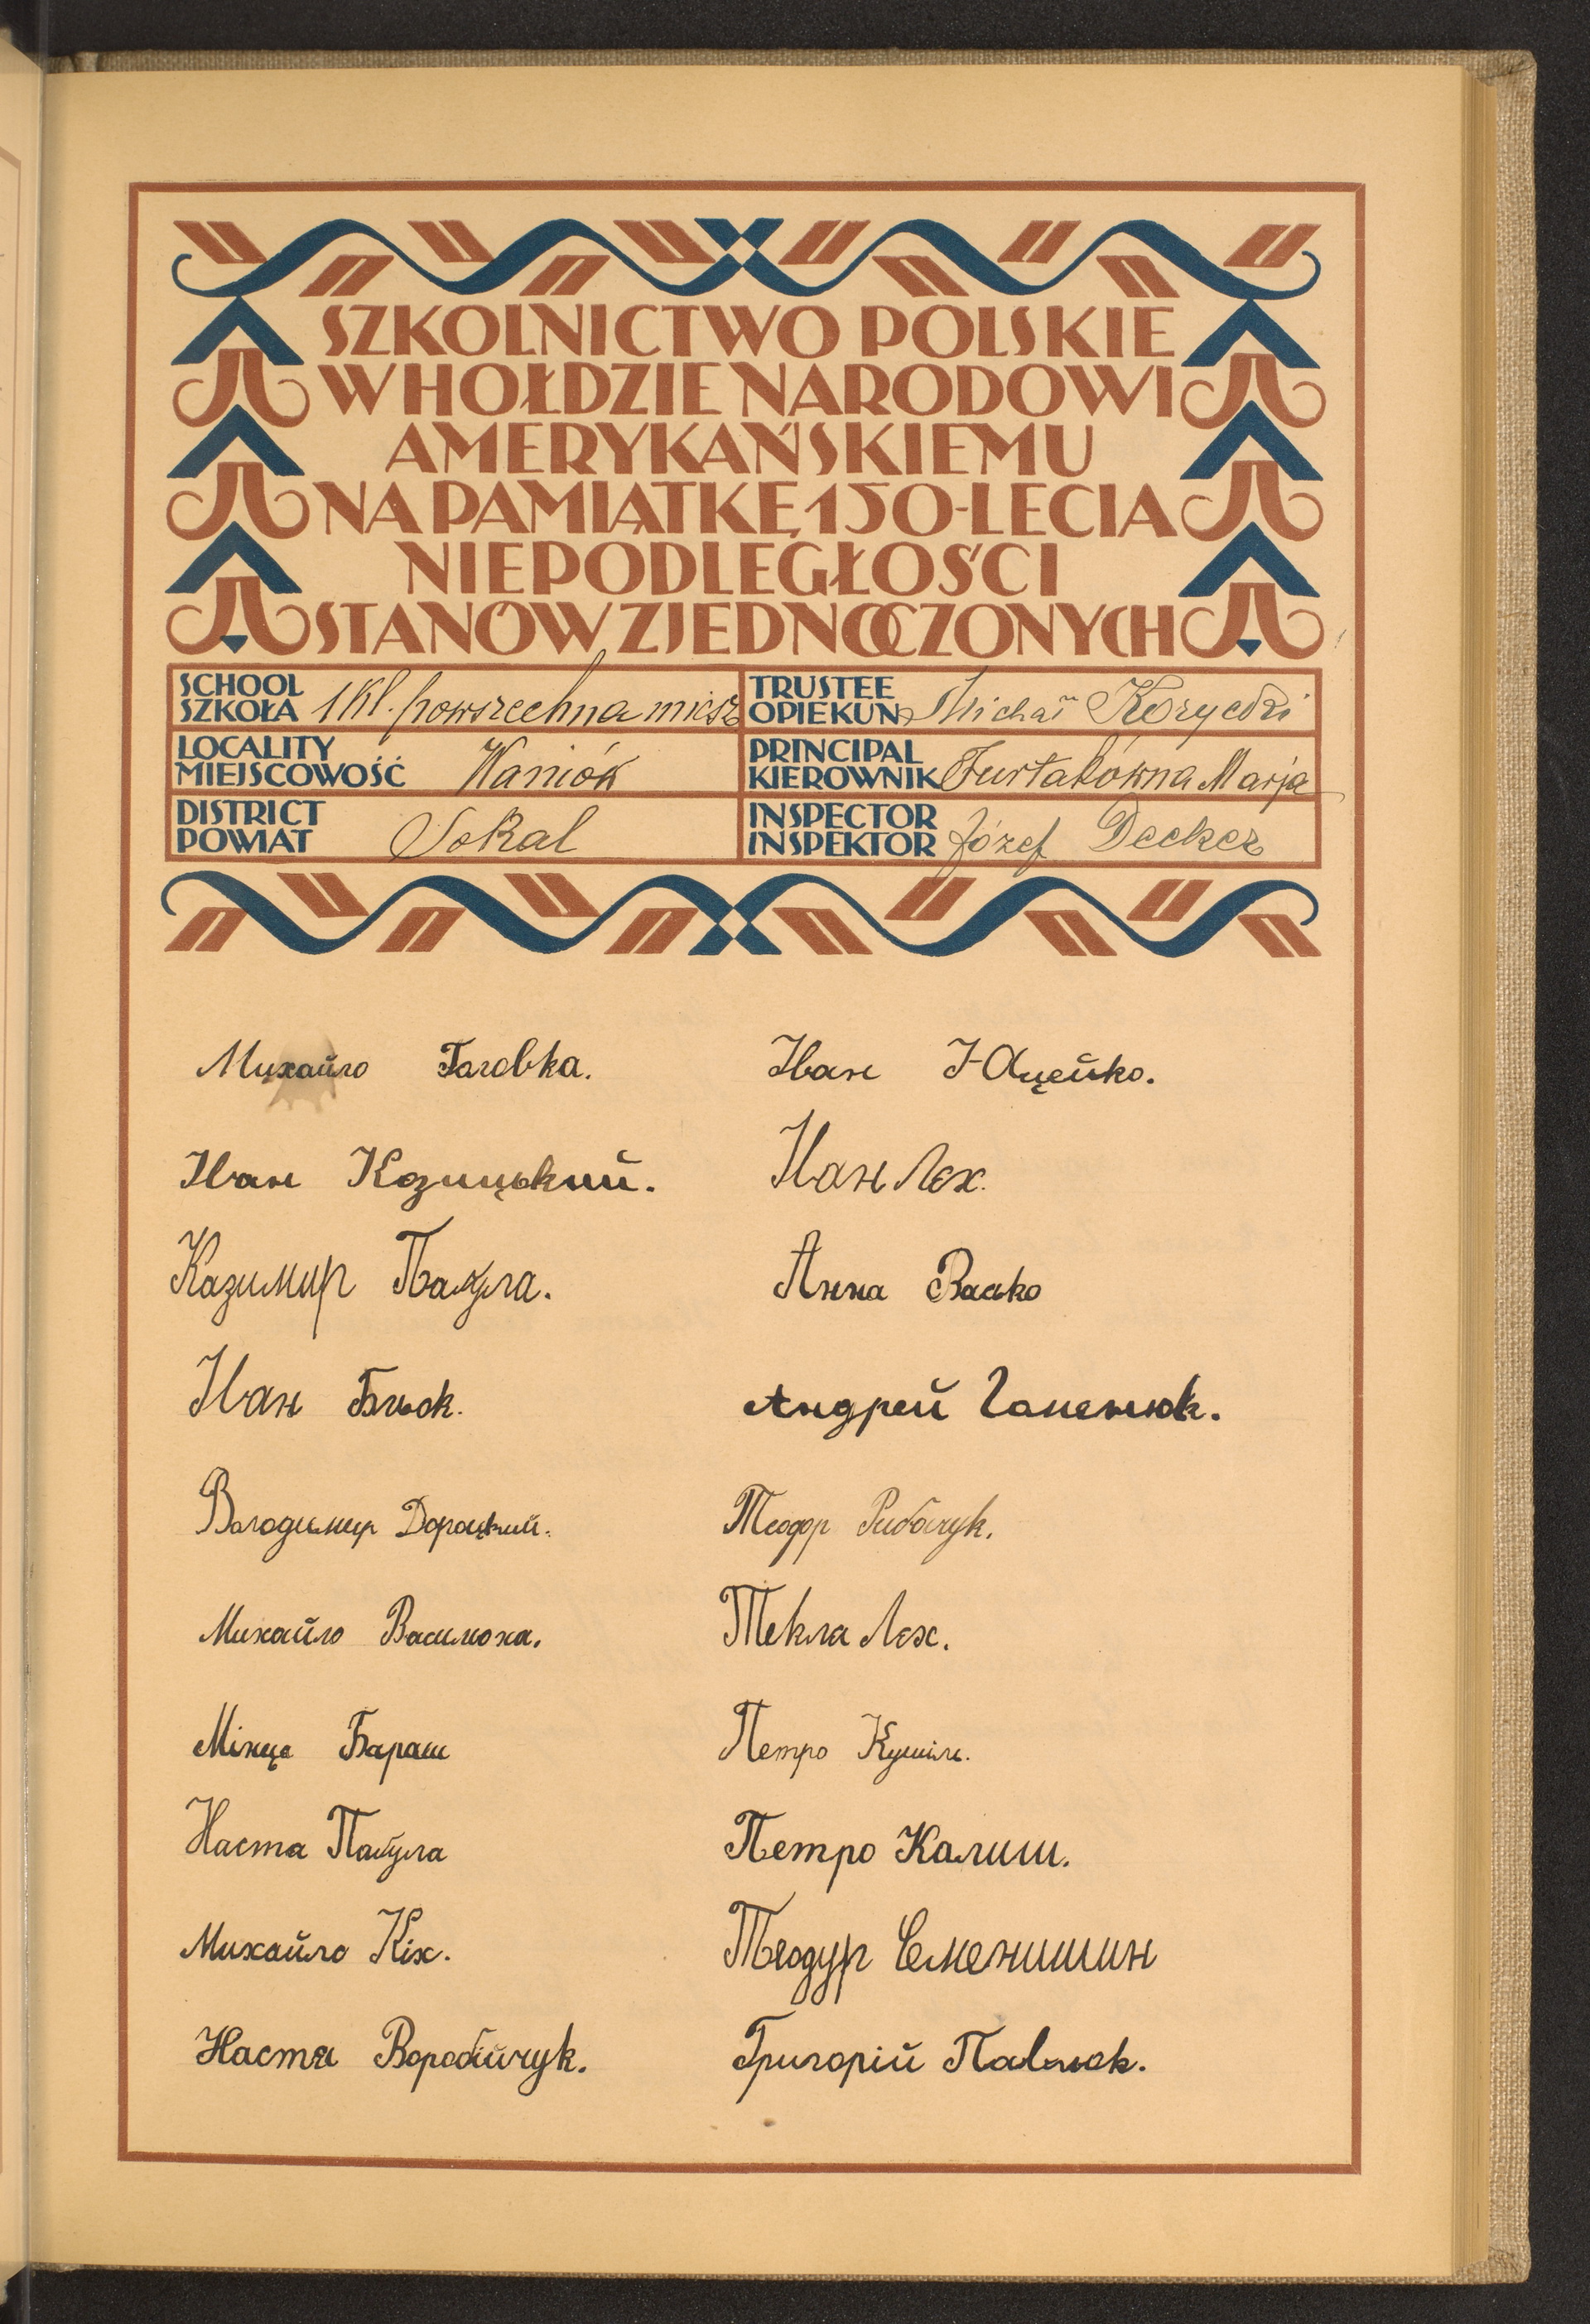 SZKOLNICTWO POLSKIE
W HOŁDZIE NARODOWI
AMERYKAŃSKIEMU
NA PAMIĄTKĘ 150-LECIA
NIEPODLEGŁOŚCI
STANÓW ZJEDNOCZONYCH
SCHOOL
SZKOŁA 1 kl. powszechna miesz
TRUSTEE
OPIEKUN Michał Kozycki
LOCALITY
MIEJSCOWOŚĆ Waniów
PRINCIPAL
KIEROWNIK Furtakówna Marja
DISTRICT
POWIAT Sokal
INSPECTOR
INSPEKTOR Józef Decker
Михайло Головка.
Іван Козицький.
Казимир Пакула.
Іван Бльок.
Володимир Дороцький.
Михайло Василюха.
Мінце Бараш
Наста Пакула
Михайло Кіх.
Настя Воробійчук.
Іван Яцейко.
Іван Лех.
Анна Васко
Андрей Гапенюк.
Теодор Рибачук.
Текла Лех.
Петро
Петро Калиш.
Теодур Семенишин
Григорій Павлюк.